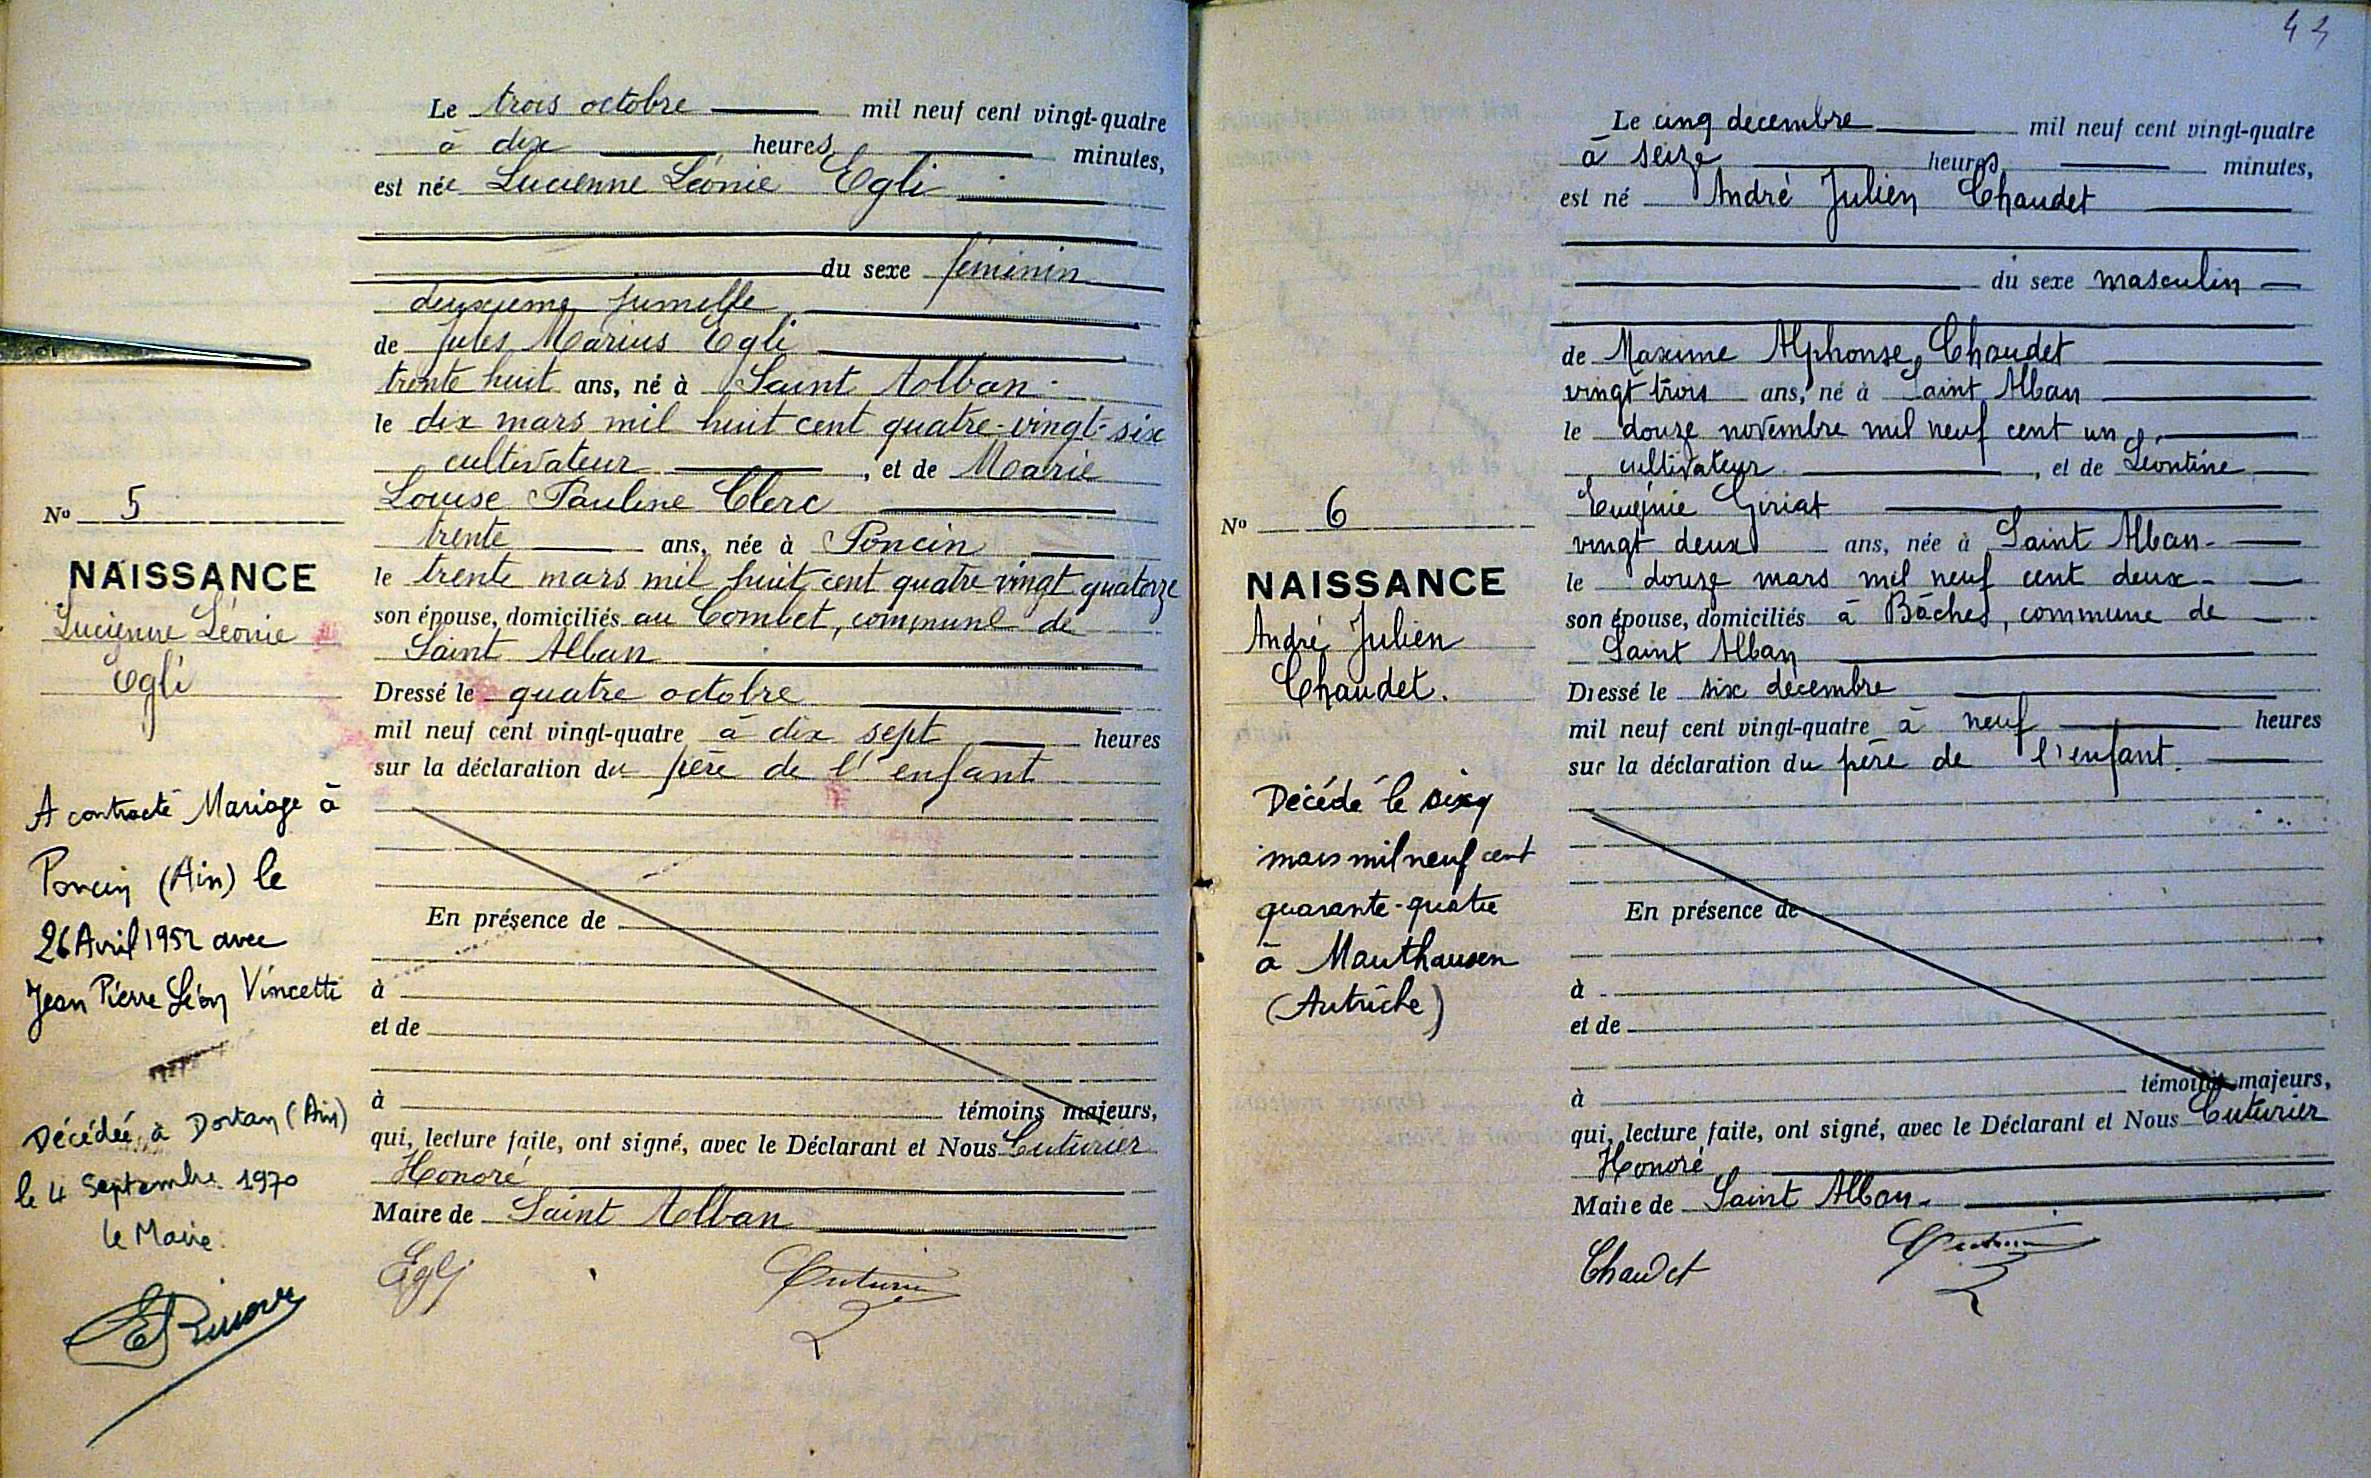 Le trois octobre mil neuf cent vingt-quatre
à dix heures minutes,
est née Lucienne Léonie Egli
du sexe féminin
deuxième jumelle
de Jules Marius Egli
trente huit ans, né à Saint Alban
le dix mars mil huit cent quatre-vingt-six
cultivateur , et de Marie
Louise Pauline Clerc
trente ans, née à Poncin
le trente mars mil huit cent quatre vingt quatorze
son épouse, domiciliés au Combet, commune de
Saint Alban
Dressé le quatre octobre
mil neuf cent vingt-quatre à dix sept heures
sur la déclaration du père de l'enfant
En présence de
à
et de
à témoins majeurs,
qui, lecture faite, ont signé, avec le Déclarant et Nous Cuturier
Honoré
Maire de Saint Alban
Egli Cuturier
No 5
NAISSANCE
Lucienne Léonie
Egli
A contracté Mariage à
Poncin (Ain) le
26 Avril 1952 avec
Jean Pierre Léon Vincetti
Décédée à Dortan (Ain)
le 4 Septembre 1970
le Maire.
43
Le cinq décembre mil neuf cent vingt-quatre
à seize heures minutes,
est né André Julien Chaudet
du sexe masculin
de Maxime Alphonse Chaudet
vingt trois ans, né à Saint Alban
le douze novembre mil neuf cent un
cultivateur , et de Léontine
Eugénie Giriat
vingt deux ans, née à Saint Alban
le douze mars mil neuf cent deux
son épouse, domiciliés à Bâches, commune de
Saint Alban
Dressé le six décembre
mil neuf cent vingt-quatre à neuf heures
sur la déclaration du père de l'enfant.
En présence de
à
et de
à témoins majeurs,
qui, lecture faite, ont signé, avec le Déclarant et Nous Cuturier
Honoré
Maire de Saint Alban
Chaudet Cuturier
No 6
NAISSANCE
André Julien
Chaudet.
Décédé le six
mars mil neuf cent
quarante-quatre
à Mauthausen
(Autriche)